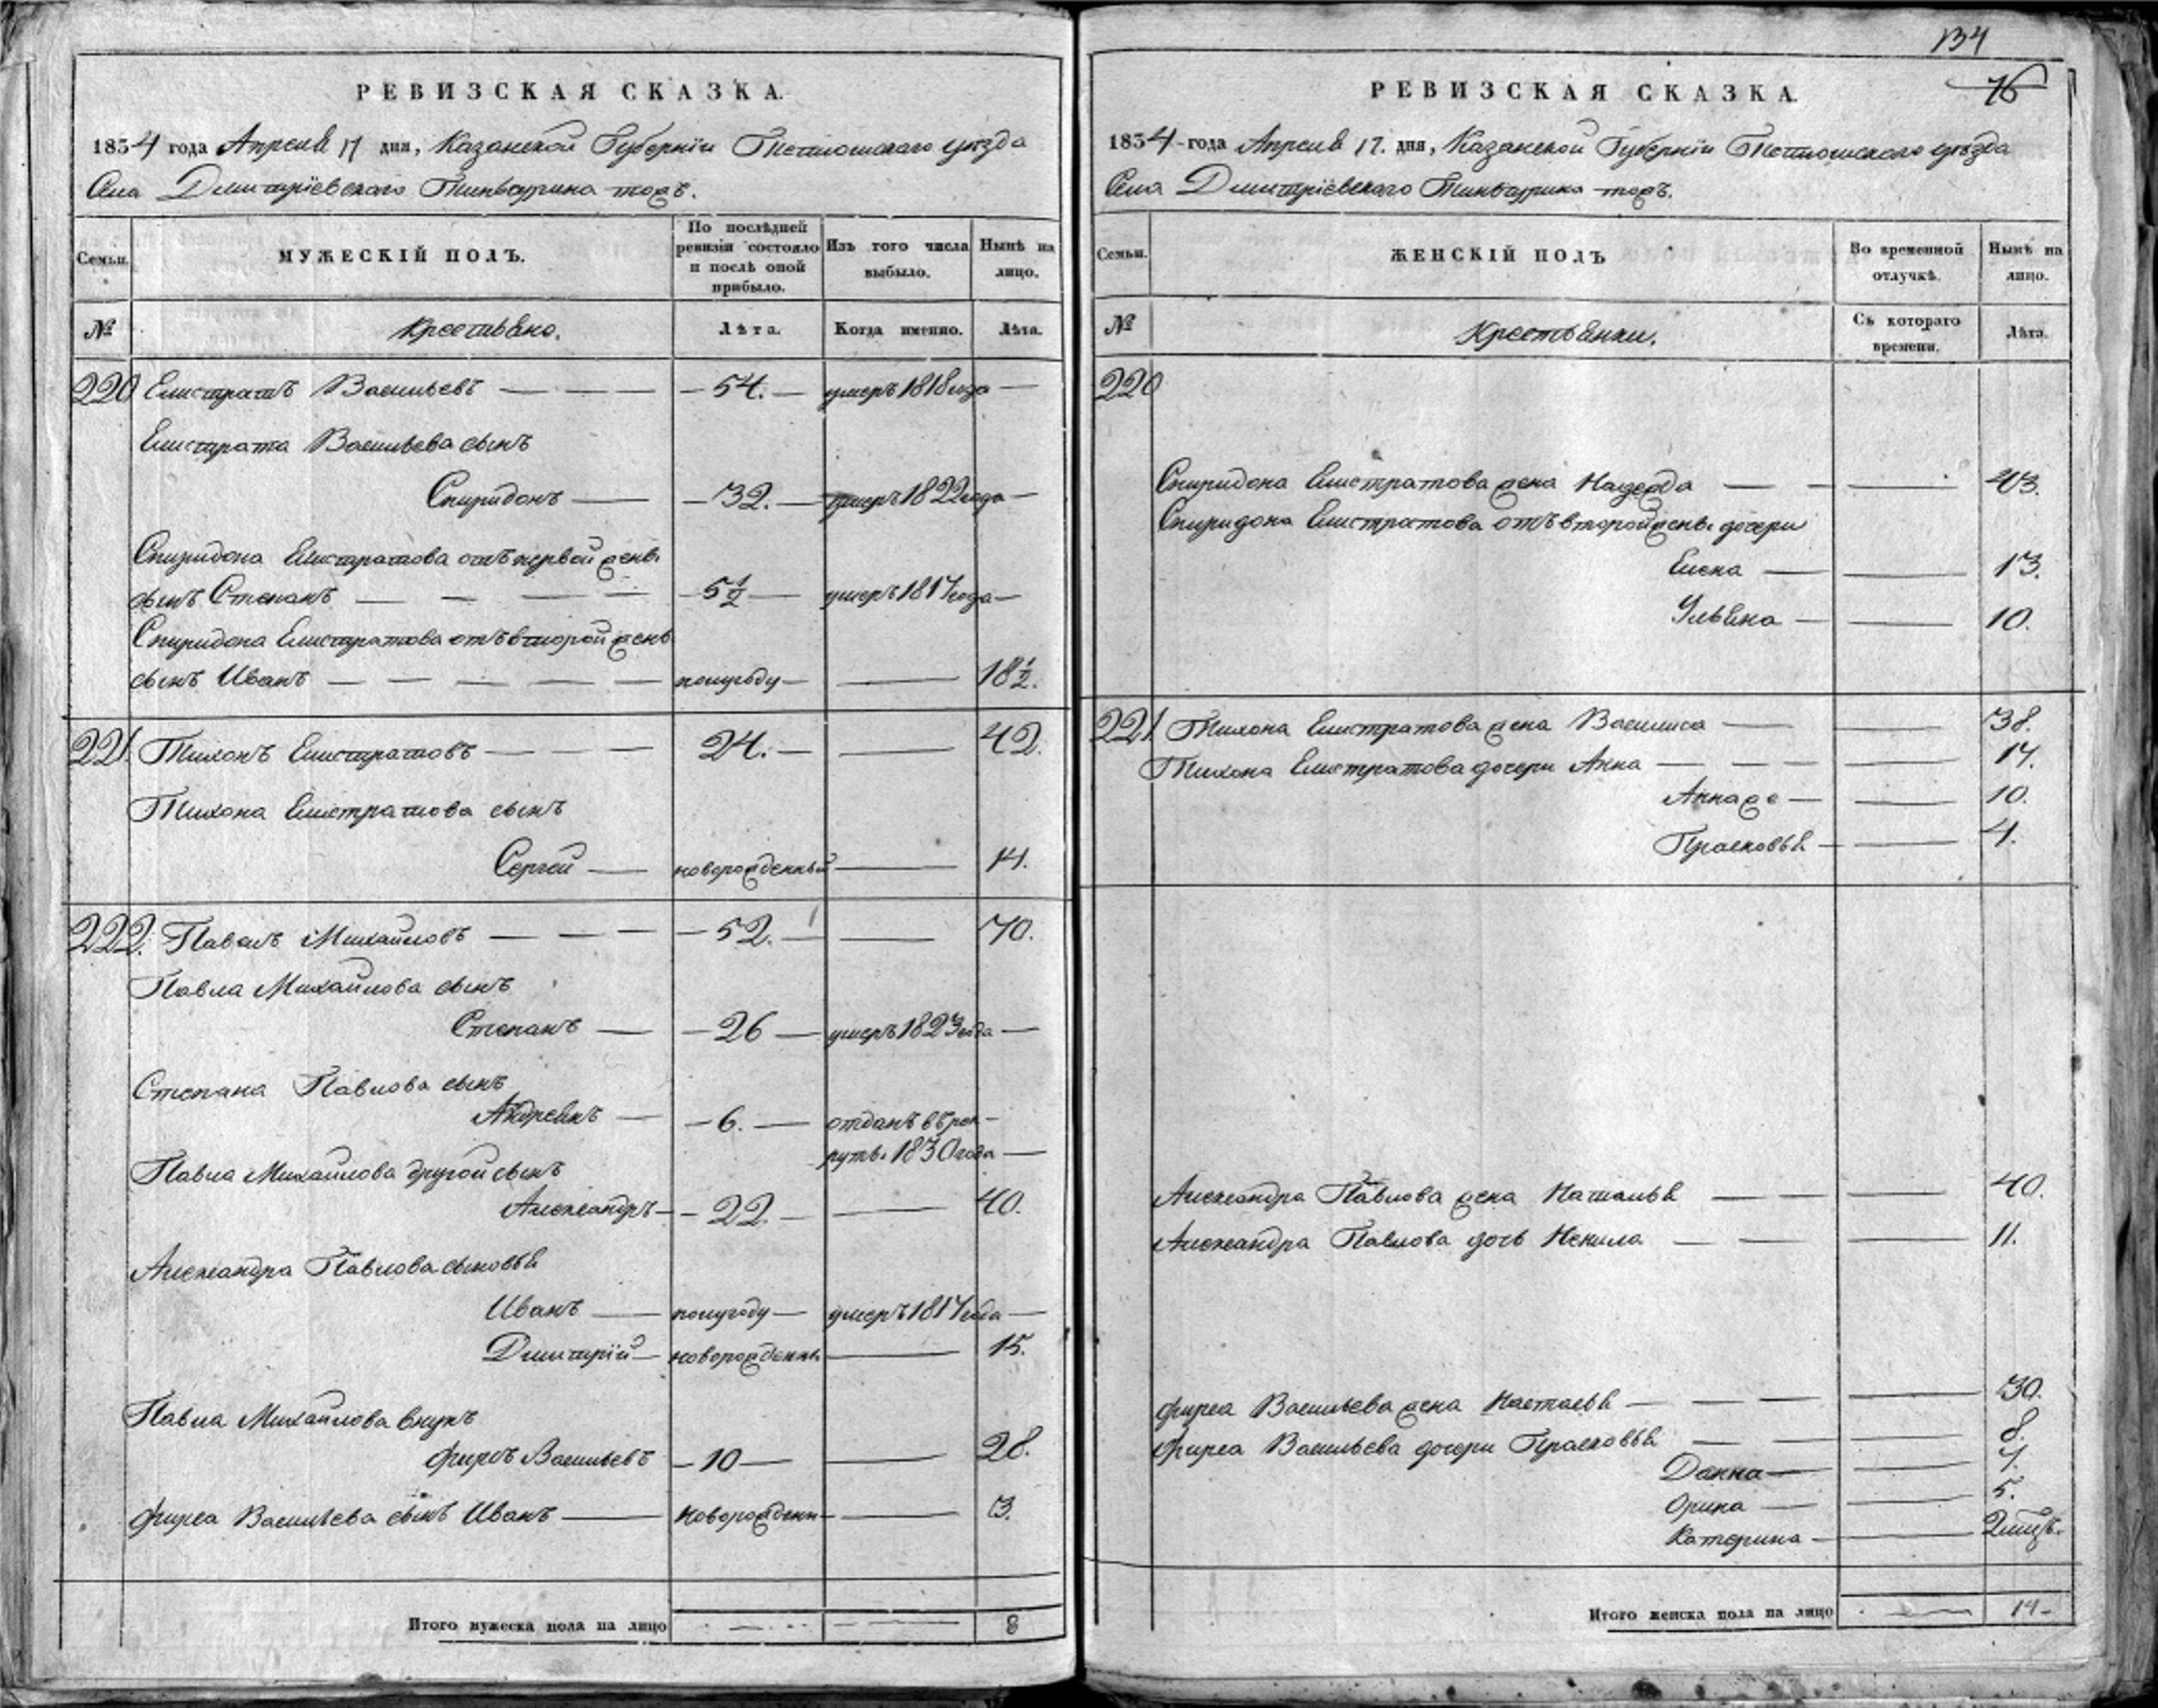 РЕВИЗСКАЯ СКАЗКА.
1834 года Апреля 17 дня, Казанской Губернiи Тетюшскаго уезда
Села Дмитрiевскаго тожъ.
Семьи.
МУЖЕСКІЙ ПОЛЪ.
По послѣдней ревизіи состояло и послѣ оной прибыло.
Изъ того числа выбыло.
Нынѣ на лицо.
№
Крестьяне.
Лѣта.
Когда именно.
Лѣта.
220 Елистратъ Васильевъ 54. умеръ 1818 года
Елистрата Васильева сынъ
Спиридонъ 32. умеръ 1822 года
Спиридона Елистратова отъ первой жены
сынъ Степанъ 5 1/2 умеръ 1817 года
Спиридона Елистратова отъ второй жены
сынъ Иванъ полугоду 18 1/2.
221. Тихонъ Елистратовъ 24. 42.
Тихона Елистратова сынъ
Сергей новорожденный 14.
222. Павелъ Михайловъ 52. 70.
Павла Михайлова сынъ
Степанъ 26 умеръ 1823 года
Степана Павлова сынъ
Андреянъ 6. отданъ в рек-
руты 1830 года
Павла Михайлова другой сынъ
Александръ 22. 40.
Александра Павлова сыновья
Иванъ полугоду умеръ 1817 года
Дмитрiй новорожденны 15.
Павла Михайлова внукъ
Фирсъ Васильевъ 10 28.
Фирса Васильева сынъ Иванъ новорожденн 3.
Итого мужеска пола на лицо 8
134
76
РЕВИЗСКАЯ СКАЗКА.
1834 года Апреля 17. дня, Казанской Губернiи Тетюшскаго уезда
Села Дмитрiевскаго тожъ.
Семьи.
ЖЕНСКІЙ ПОЛЪ
Во временной отлучкѣ.
Нынѣ на лицо.
№
Крестьянки.
Съ котораго времени.
Лѣта.
220
Спиридона Елистратова жена Надежда 43.
Спиридона Елистратова отъ второй жены дочери
Елена 13.
Ульяна 10.
221 Тихона Елистратова жена Василиса 38.
Тихона Елистратова дочери Анна 17.
Анна же 10.
Прасковья 4.
Александра Павлова жена Наталья 40.
Александра Павлова дочь Ненила 11.
Фирса Васильева жена Настасья 30.
Фирса Васильева дочери Прасковья 8.
Домна 7.
Орина 5.
Катерина
Итого женска пола на лицо 14